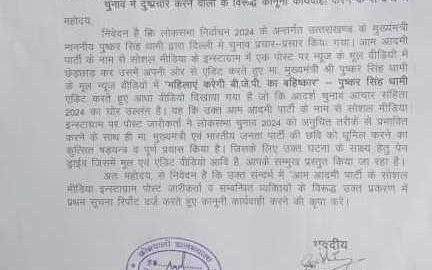 चुनाव में दुष्प्रचार करने वालों के विरूद्ध कानूनी कार्यवाही करने के
महोदय,
निवेदन है कि लोकसभा निर्वाचन 2024 के अन्तर्गत उत्तराखण्ड के मुख्यमंत्री
माननीय पुष्कर सिंह धामी द्वारा दिल्ली में चुनाव प्रचार-प्रसार किया गया। आम आदमी
पार्टी के नाम से सोशल मीडिया के इन्स्टाग्राम में एक पोस्ट पर न्यूज के मूल वीडियो में
छेड़छाड़ कर उसमें अपनी ओर से एडिट करते हुए मा. मुख्यमंत्री श्री पुष्कर सिंह धामी
के मूल न्यूज वीडियो में "महिलाएं करेगी बी.जे.पी. का बहिष्कार" – पुष्कर सिंह धामी
एडिट करते हुए आधा वीडियो दिखाया गया है जो कि आदर्श चुनाव आचार संहिता
2024 का घोर उल्लंघन है। यह कि उक्त आम आदमी पार्टी के नाम से सोशल मीडिया
इन्सटाग्राम पर पोस्ट जारीकर्ता ने लोकसभा चुनाव 2024 को अनुचित तरीके से प्रभावित
करने के साथ ही मा. मुख्यमंत्री एवं भारतीय जनता पार्टी की छवि को धूमिल करने का
कुत्सित षडयन्त्र व पूर्ण प्रयास किया है। जिसके लिए उक्त घटना के साक्ष्य हेतु पेन
ड्राईव जिसमें मूल एवं एडिट वीडियो आदि है, आपके सम्मुख प्रस्तुत किया जा रहा है।
अतः महोदय, से निवेदन है कि उक्त सन्दर्भ में "आम आदमी पार्टी के सोशल
मीडिया इन्स्टाग्राम पोस्ट जारीकर्ता व सम्बन्धित व्यक्तियों के विरूद्ध उक्त प्रकरण में
प्रथम सूचना रिपोर्ट दर्ज करते हुए कानूनी कार्यवाही करने की कृपा करें।
भवदीय